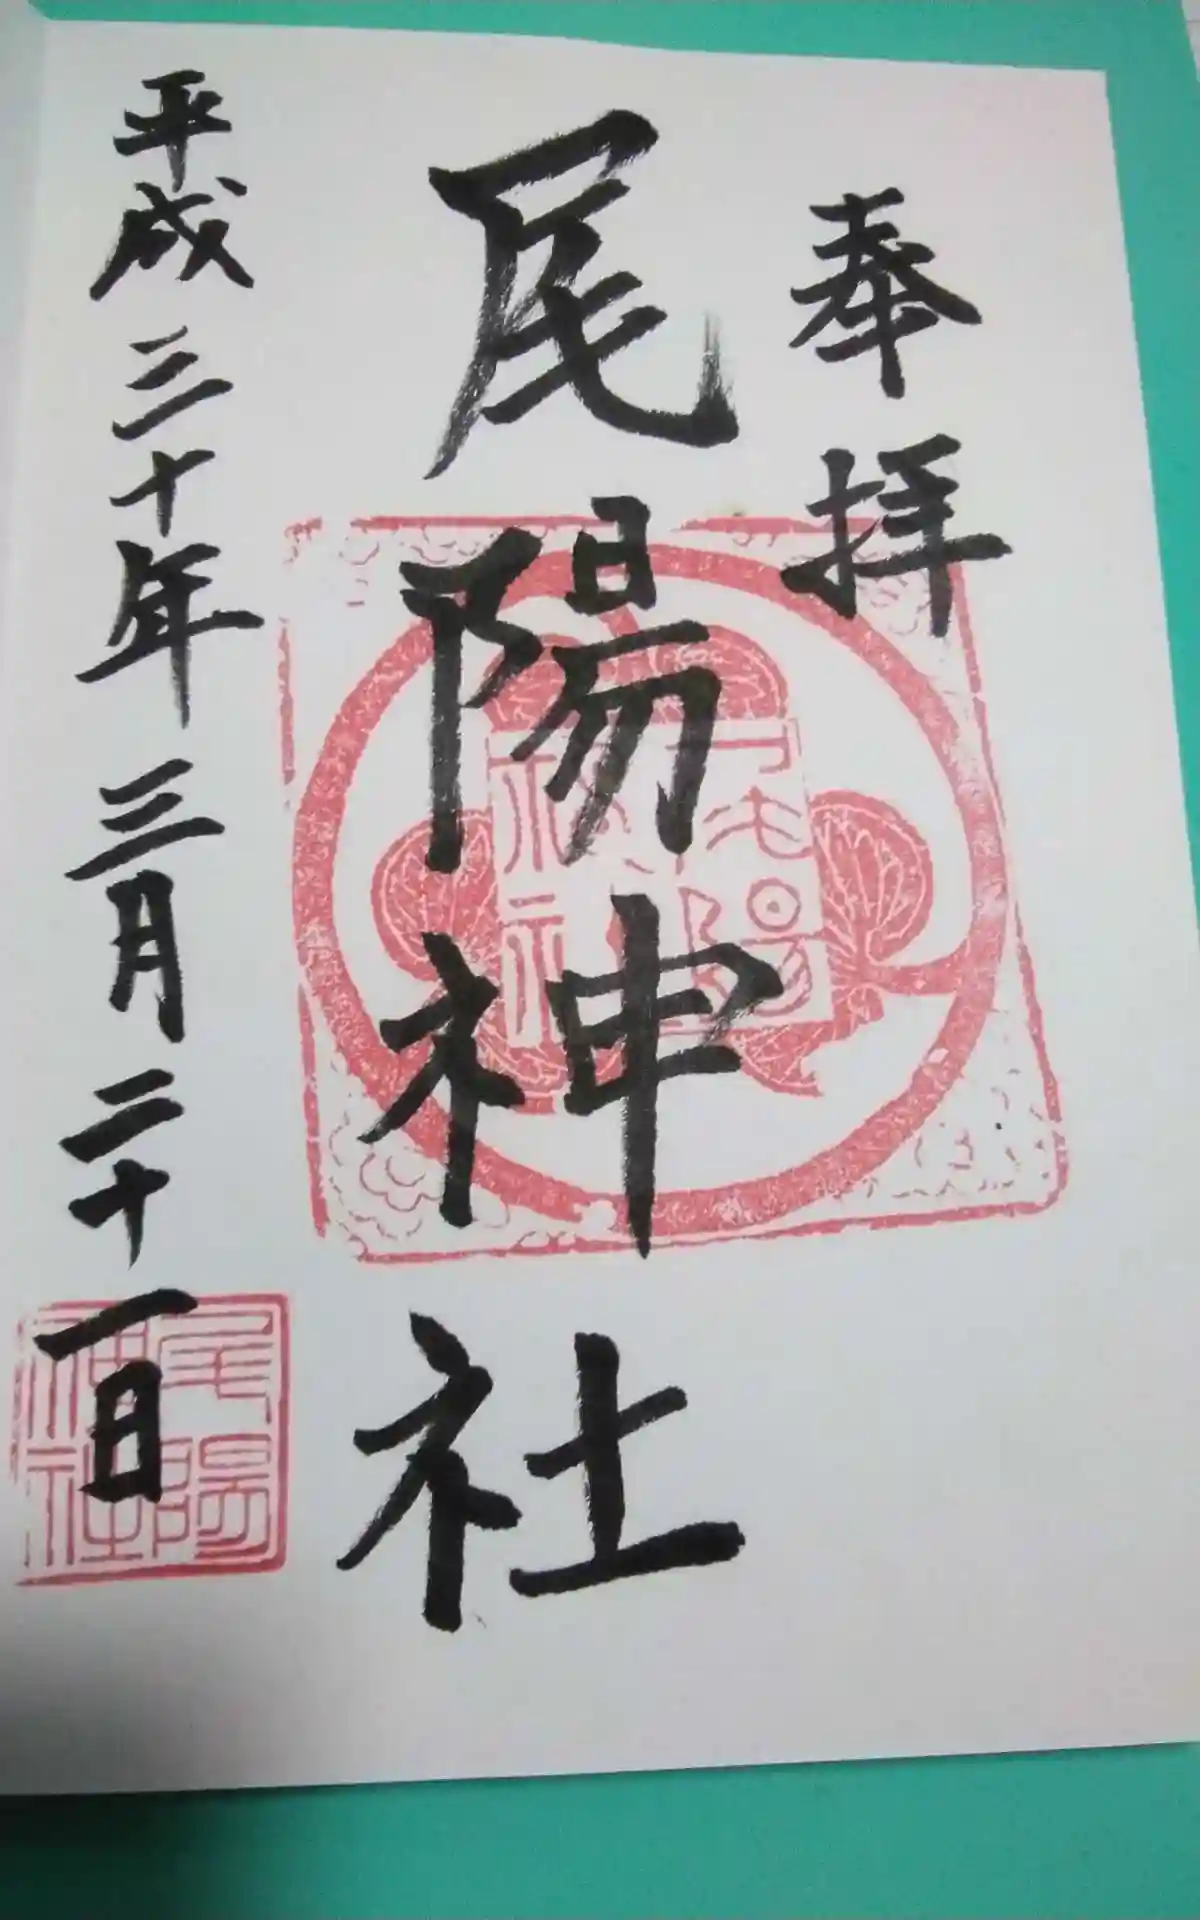 奉拝
尾陽神社
尾陽
神社
平成三十年三月二十一日
尾陽
神社